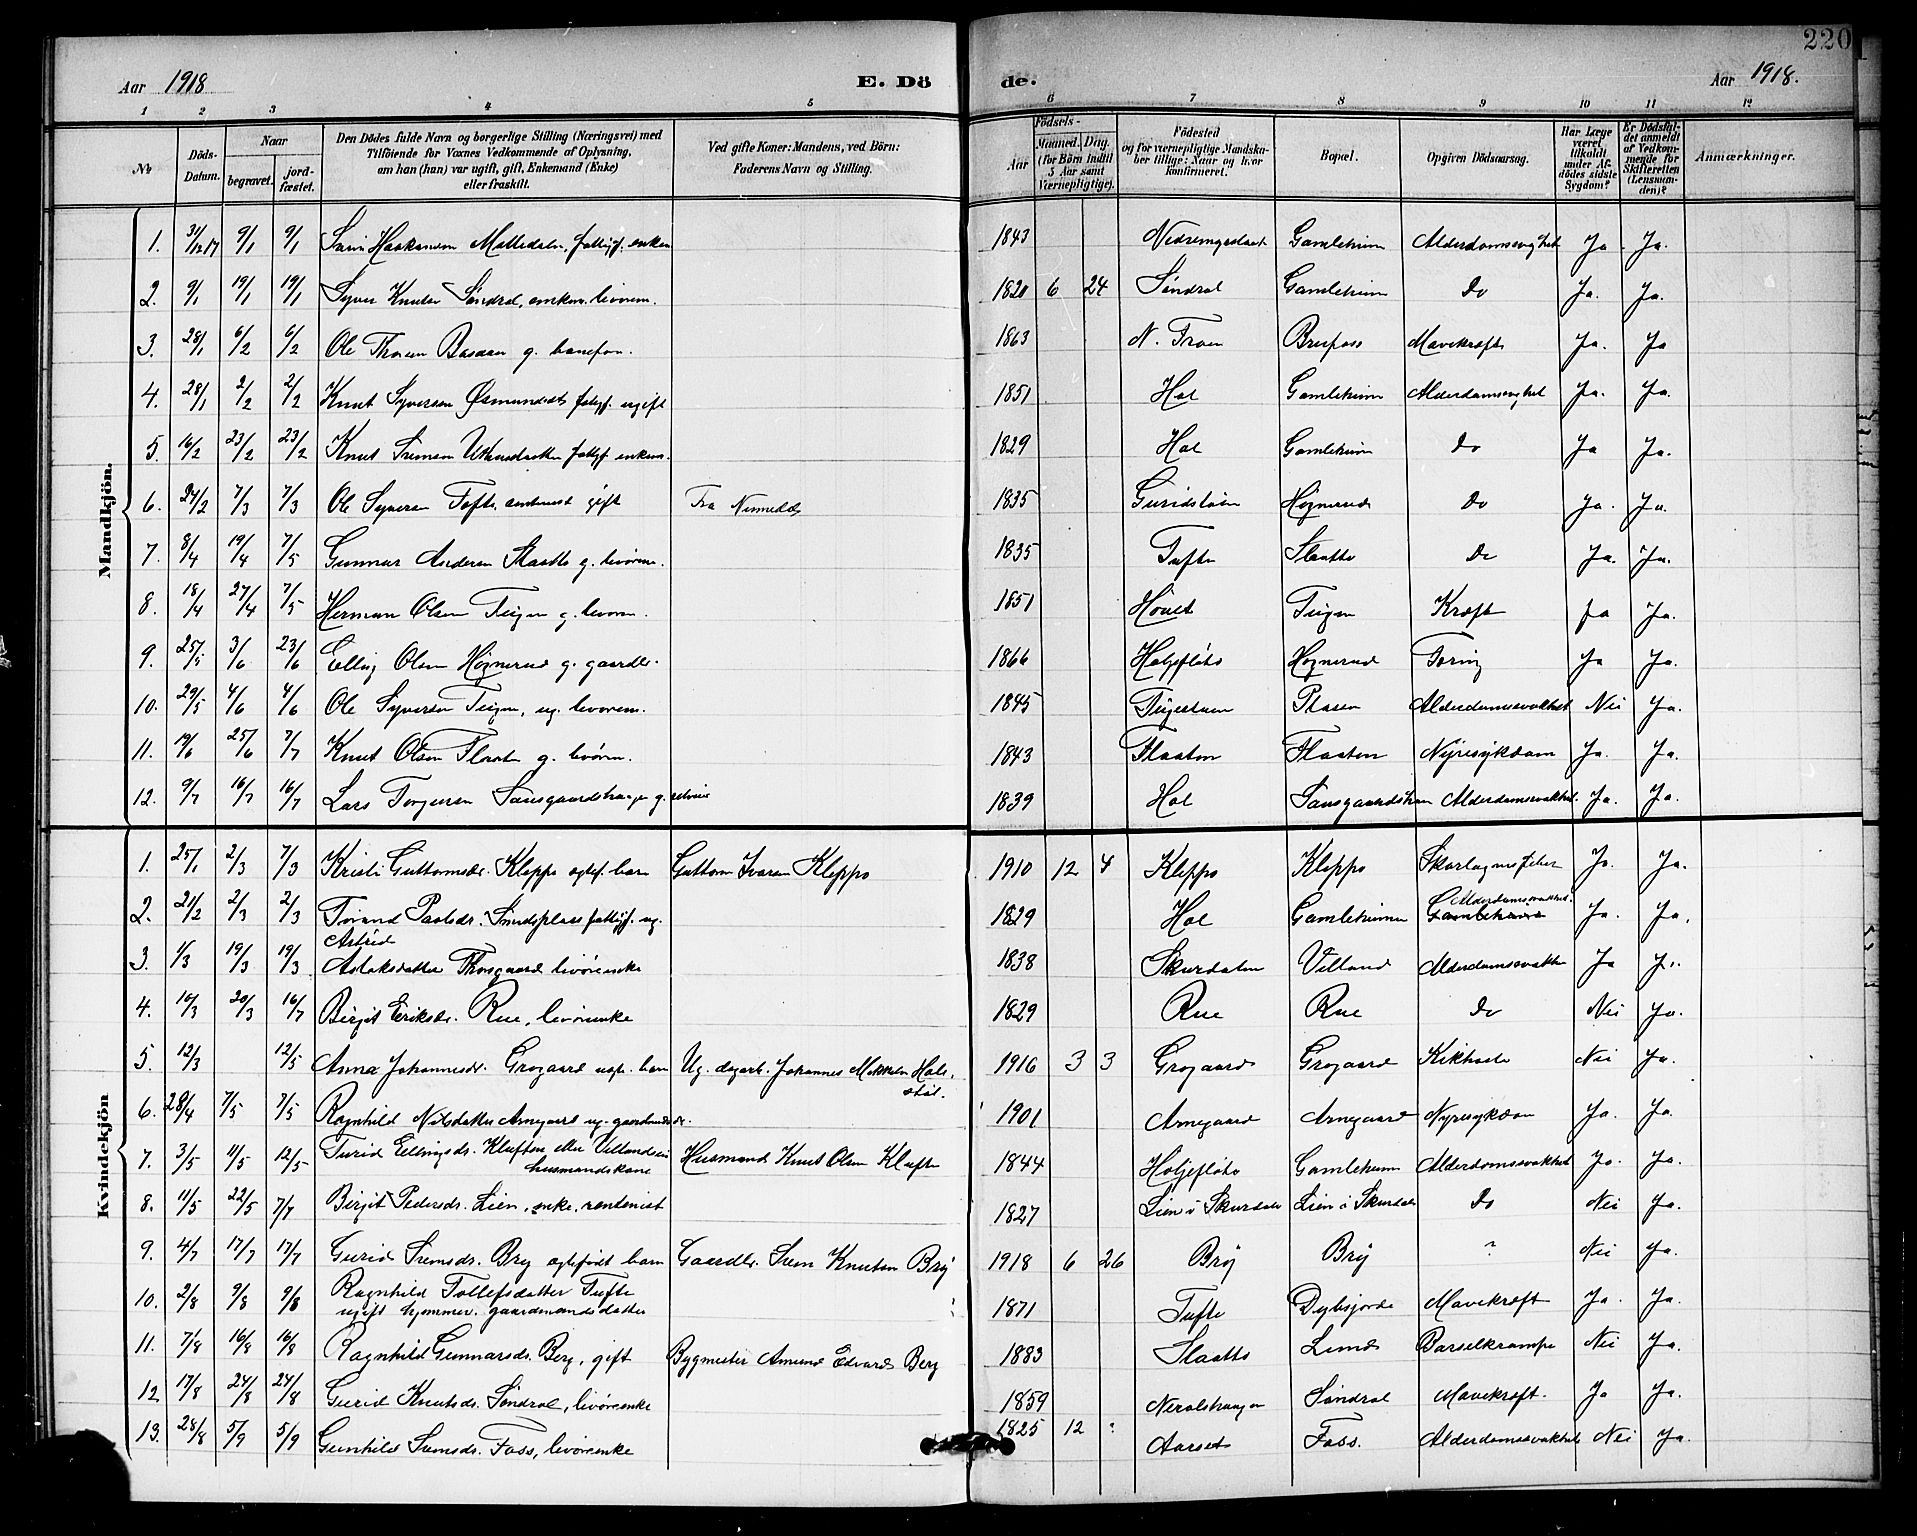 220
Aar 1918
E. Dö de.
Aar 1918.
1 2 3 4 5 6 7 8 9 10 11 12
No
Döds-Datum.
Naar begravet. jordfæstet.
Den Dödes fulde Navn og borgerlige Stilling (Næringsvei) med Tilföiende for Voxnes Vedkommende af Oplysning, om han (hun) var ugift, gift, Enkemand (Enke) eller fraskilt.
Ved gifte Koner: Mandens, ved Börn: Faderens Navn og Stilling.
Födsels- Aar Maaned. Dag. (for Börn indtil 5 Aar samt Værnepligtige).
Födested og for værnepligtige Mandskaber tillige: Naar og hvor konfirmeret.
Bopæl.
Opgiven Dödsaarsag.
Har Læge været tilkaldt under Afdödes sidste Sygdom?
Er Dödsfaldet anmeldt af Vedkommende for Skifteretten (Lensmanden)?
Anmærkninger.
Mandkjön.
1. 31/12 17 9/1 9/1 Haakansen 1843 Gamleheim Ja Ja.
2. 9/1 19/1 19/1 Syver Knutsen Søndrol, enkem. livørem. 1820 6 24 Søndrol Gamleheim Do Ja. Ja.
3. 28/1 6/2 6/2 Ole g. 1863 N. Troen Brufoss Mavekræft Ja. Ja
4. 28/1 2/2 2/2 Knut Syversen ugift 1851 Hol Gamleheim Alderdomssvghet Ja. Ja.
5. 16/2 23/2 23/2 Knut enkem. 1829 Hol Gamleheim Do Ja Ja.
6. 24/2 7/3 7/3 Ole Syversen Tufte gift Fra 1835 Høgnerud Do Ja. Ja.
7. 8/4 19/4 7/5 Gunnar Andersen Slaatto g. livørem. 1835 Tufte Slaatto Do Ja. Ja.
8. 18/4 27/4 7/5 Herman Olsen Teigen g. livørem. 1851 Hovet Teigen Kræft Ja Ja.
9. 25/5 3/6 23/6 Elling Olsen Høgnerud g. gaardbr. 1866 Holjefløto Høgnerud Tæring Ja Ja.
10. 29/5 4/6 4/6 Ole Syversen Teigen, ug. livørem. 1845 Plasen Alderdomssvakhet Nei Ja.
11. 19/6 25/6 7/7 Knut Olsen Flaaten g. livørm. 1843 Flaaten Flaaten Nyresykdom Ja. Ja.
12. 9/7 16/7 16/7 Lars Torgersen Sausgaardshaugen g. 1839 Hol Alderdomssvakhet. Ja. Ja.
Kvindekjön
1. 25/1 2/3 7/3 Kristi Guttormsdr. Kleppo egtef. barn Guttorm Ivarsen Kleppo 1910 12 4 Kleppo Kleppo Skarlagensfeber Ja. Ja.
2. 21/2 2/3 2/3 Tørand Paalsdr. ug. 1829 Hol Gamleheimen Alderdomssvakhet. Gamleheimen Ja. Ja.
3. 1/3 19/3 19/3 Astrid Aslaksdatter Thorsgaard livørenke 1838 Skurdalen Villand Alderdomssvakhe Ja Ja.
4. 10/3 20/3 16/7 Birgit Eriksdr. Rue, livørenke 1829 Rue Rue Do Nei Ja.
5. 12/3 12/5 Anna Johannesdr. Grogaard uegt. barn Ug. dagarb. Johannes Mikkelsen Holsstøl. 1916 3 3 Grogaard Grogaard Kikhoste Nei Ja.
6. 28/4 7/5 7/5 Ragnhild Nilsdatter Arnegaard ug. gaardmandsdr. 1901 Arnegaard Arnegaard Nyresykdom Ja. Ja.
7. 3/5 11/5 12/5 Turid Ellingsdr. Kluften eller Villandseie husmandskone Husmand Knut Olsen Kluften 1844 Holjefløto Gamleheimen Alderdomssvakhet Ja. Ja.
8. 11/5 22/5 7/7 Birgit Pedersdr. Lien, enke, rentenist 1827 Lien i Skurdalen Lien i Skurdalen Do Nei Ja.
9. 4/7 17/7 17/7 Gurid Svensdr. Bry egtefødt barn Gaardbr. Sven Knutsen Brÿ 1918 6 26 Brÿ Brÿ ? Nei Ja.
10. 2/8 9/8 9/8 Ragnhild Tollefsdatter Tufte ugift hjemmev. gaardmandsdatter 1871 Tufte Dybsjorde Mavekræft Ja. Ja.
11. 7/8 16/8 16/8 Ragnhild Gunnarsdr. Berg, gift Bygmester Amund Edvards Berg 1883 Slaatto Lund Barselkrampe Nei Ja.
12 17/8 24/8 24/8 Gurid Knutsdr. Søndrol, livørenke 1859 Neralshaugen Søndrol Mavekræft. Ja Ja.
13. 28/8 5/9 5/9 Gunhild Svensdr. Foss, livørenke 1825 12 ? Aarset Foss. Alderdomssvakhet Nei Ja.